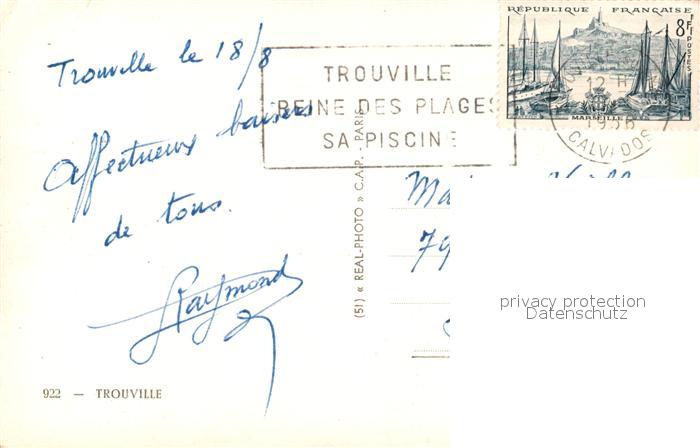 Trouville le 18/8
Affectueux baisers
de tous.
Raymond
922 — TROUVILLE
TROUVILLE
REINE DES PLAGES
SA PISCINE
(51) « REAL-PHOTO » C.A.P. - PARIS
RÉPUBLIQUE FRANÇAISE
8F
POSTES
MARSEILLE
12 H
CALVADOS
79
privacy protection
Datenschutz